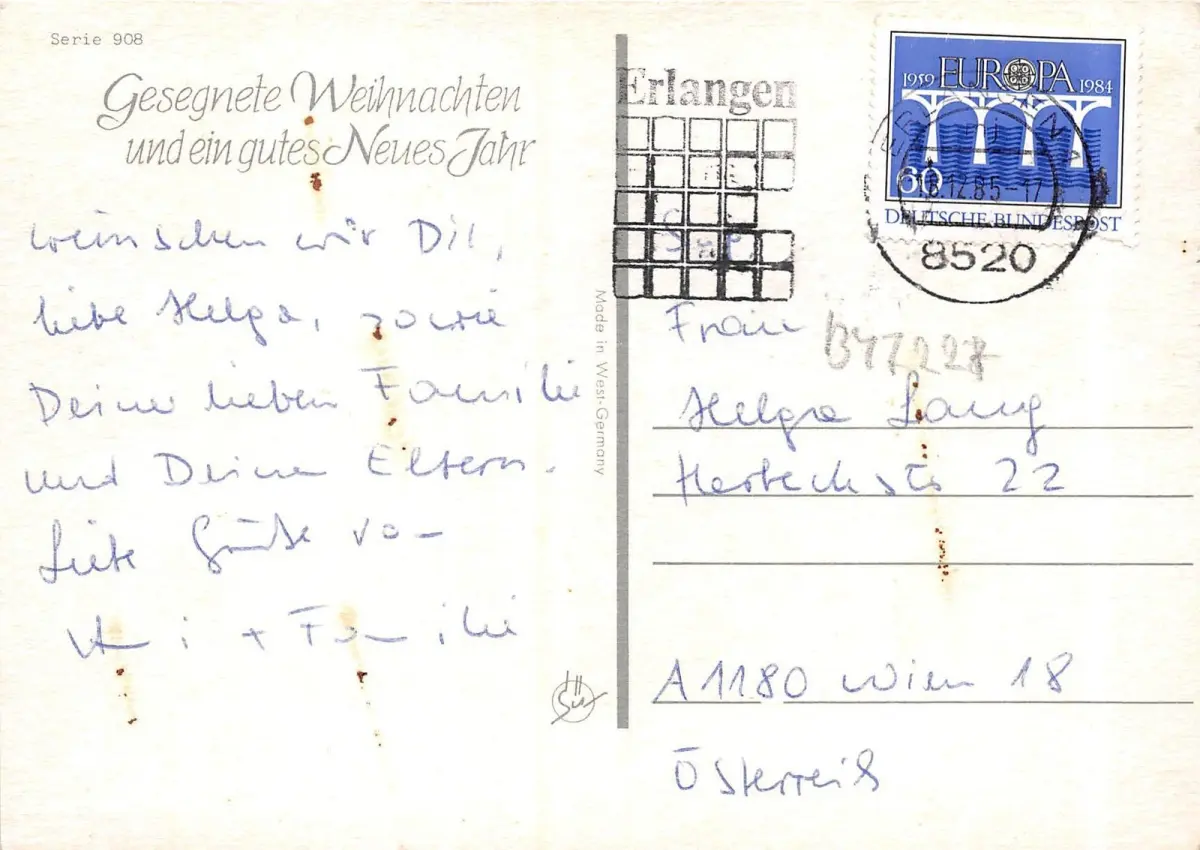 Serie 908
Gesegnete Weihnachten
und ein gutes Neues Jahr
wünschen wir Dir,
liebe Helga, sowie
Deiner lieben Familie
und Deinen Eltern.
Liebe Grüße von
+ Familie
Made in West-Germany
Erlangen
1959 EUROPA 1984
60
DEUTSCHE BUNDESPOST
12.85-17
8520
Frau
Helga Lang
22
A 1180 Wien 18
Österreich